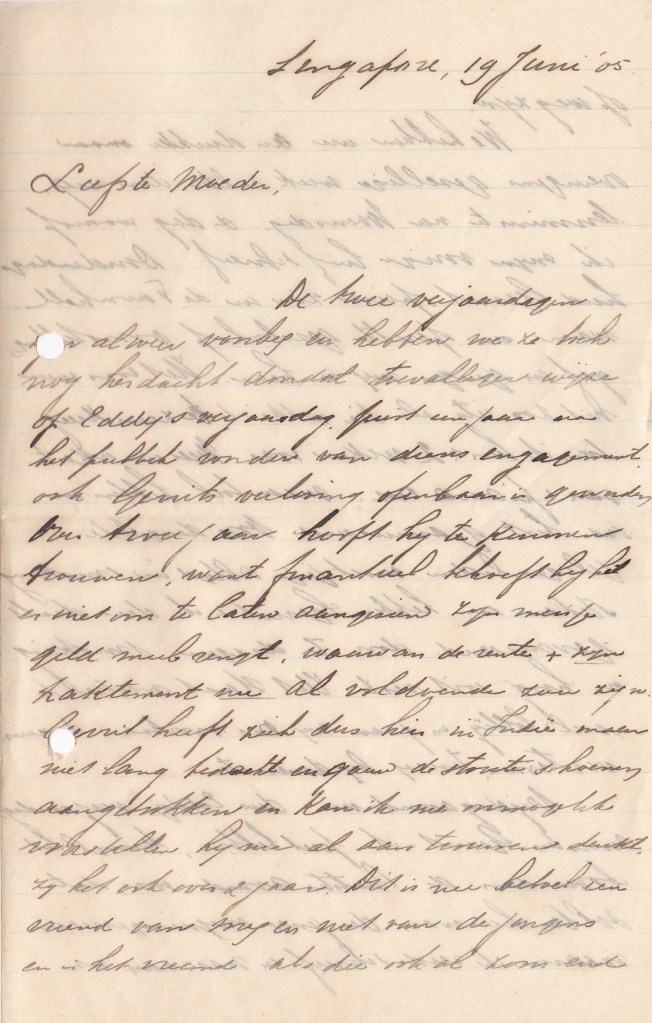 Singapore, 19 Juni '05.
Liefste Moeder,
De twee verjaardagen
zijn alweer voorbij en hebben we ze toch
nog herdacht doordat toevalliger wijze
op Eddy's verjaardag, juist een jaar na
het publiek worden van diens engagement,
ook Gerrits verloving openbaar is geworden
Over twee jaar hoopt hij te kunnen
trouwen, want financieel behoeft hij het
er niet om te laten aangezien zijn meisje
geld meebrengt, waarvan de rente + zijn
traktement nu al voldoende zou zijn.
Gerrit heeft zich dus hier in Indië maar
niet lang bedacht en gauw de stoute schoenen
aangetrokken en kan ik me onmogelijk
voorstellen, hij nu al aan trouwen denkt,
zij het ook over 2 jaar. Dit is nu een
vriend van mij en niet van de jongens
en is het vreemd als die ook al